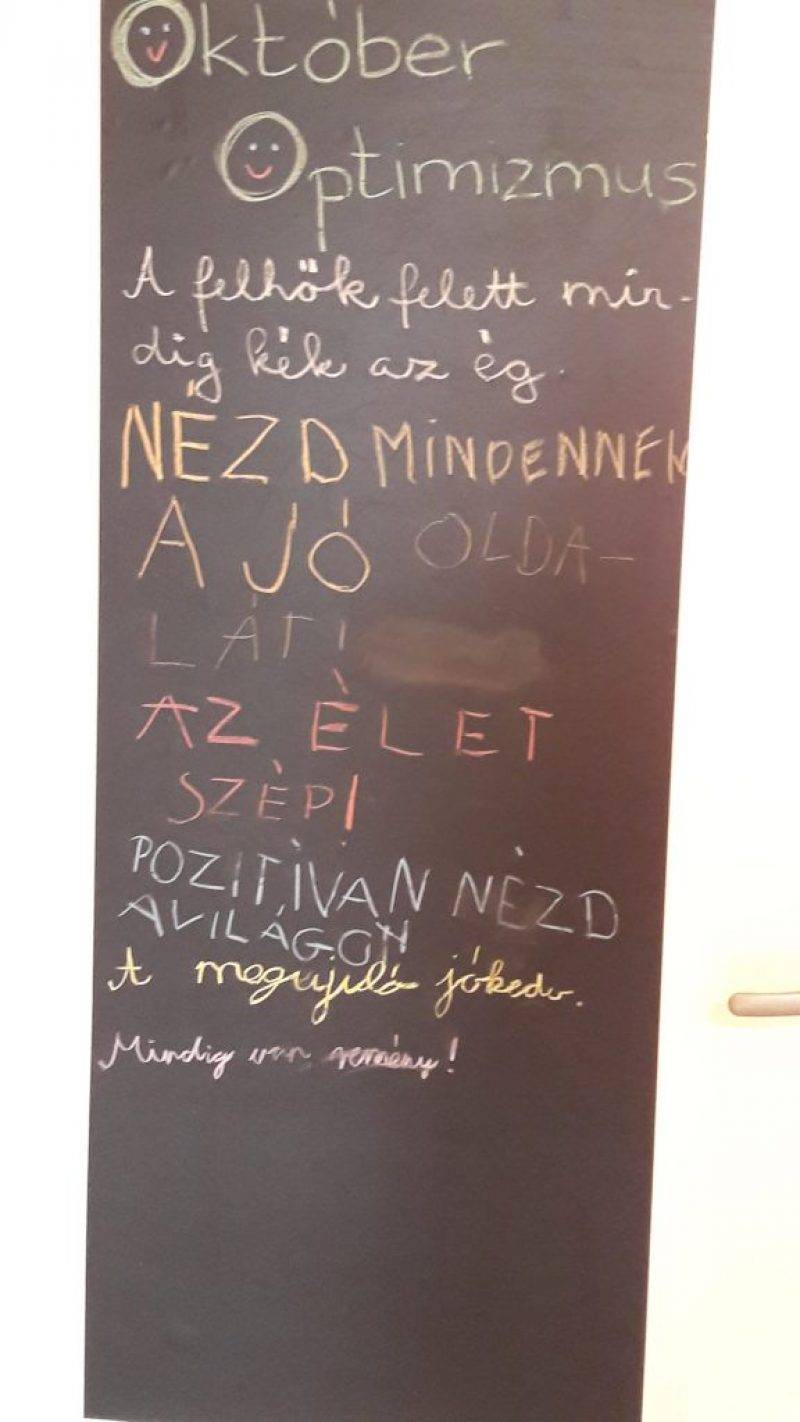 Október
Optimizmus
A felhők felett min-
dig kék az ég.
NÉZD MINDENNEK
A JÓ OLDA-
LÁT!
AZ ÉLET
SZÉP!
POZITÍVAN NÉZD
A VILÁGOT
A megujuló jókedv.
Mindig van remény!